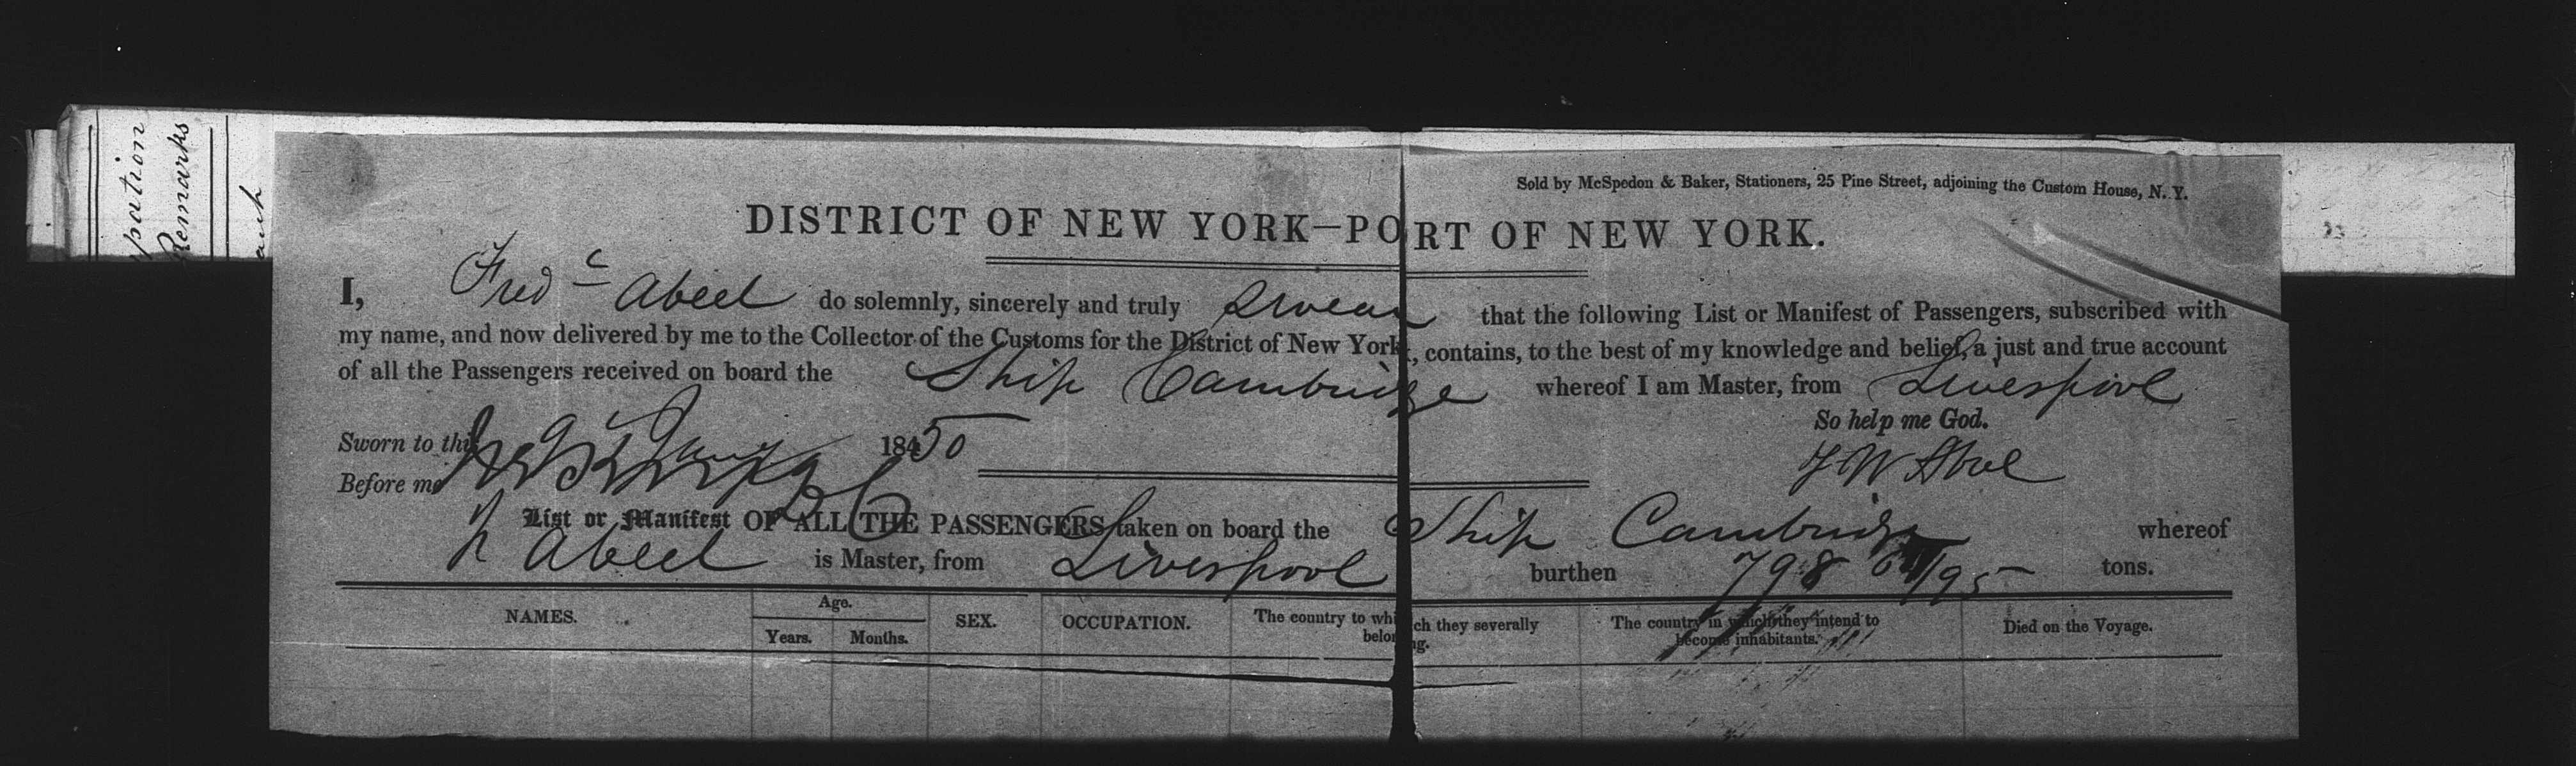 pation
Remarks
Sold by McSpedon & Baker, Stationers, 25 Pine Street, adjoining the Custom House, N. Y.
DISTRICT OF NEW YORK—PORT OF NEW YORK.
I, Fredc Abeel do solemnly, sincerely and truly Swear that the following List or Manifest of Passengers, subscribed with
my name, and now delivered by me to the Collector of the Customs for the District of New York, contains, to the best of my knowledge and belief, a just and true account
of all the Passengers received on board the Ship Cambridge whereof I am Master, from Liverpool
So help me God.
Sworn to this 1850
F W Abeel
Before me
List or Manifest OF ALL THE PASSENGERS taken on board the Ship Cambridge whereof
Abeel is Master, from Liverpool burthen 798 /95 tons.
NAMES. Age. Years. Months. SEX. OCCUPATION. The country to which they severally belong. The country in which they intend to become inhabitants. Died on the Voyage.